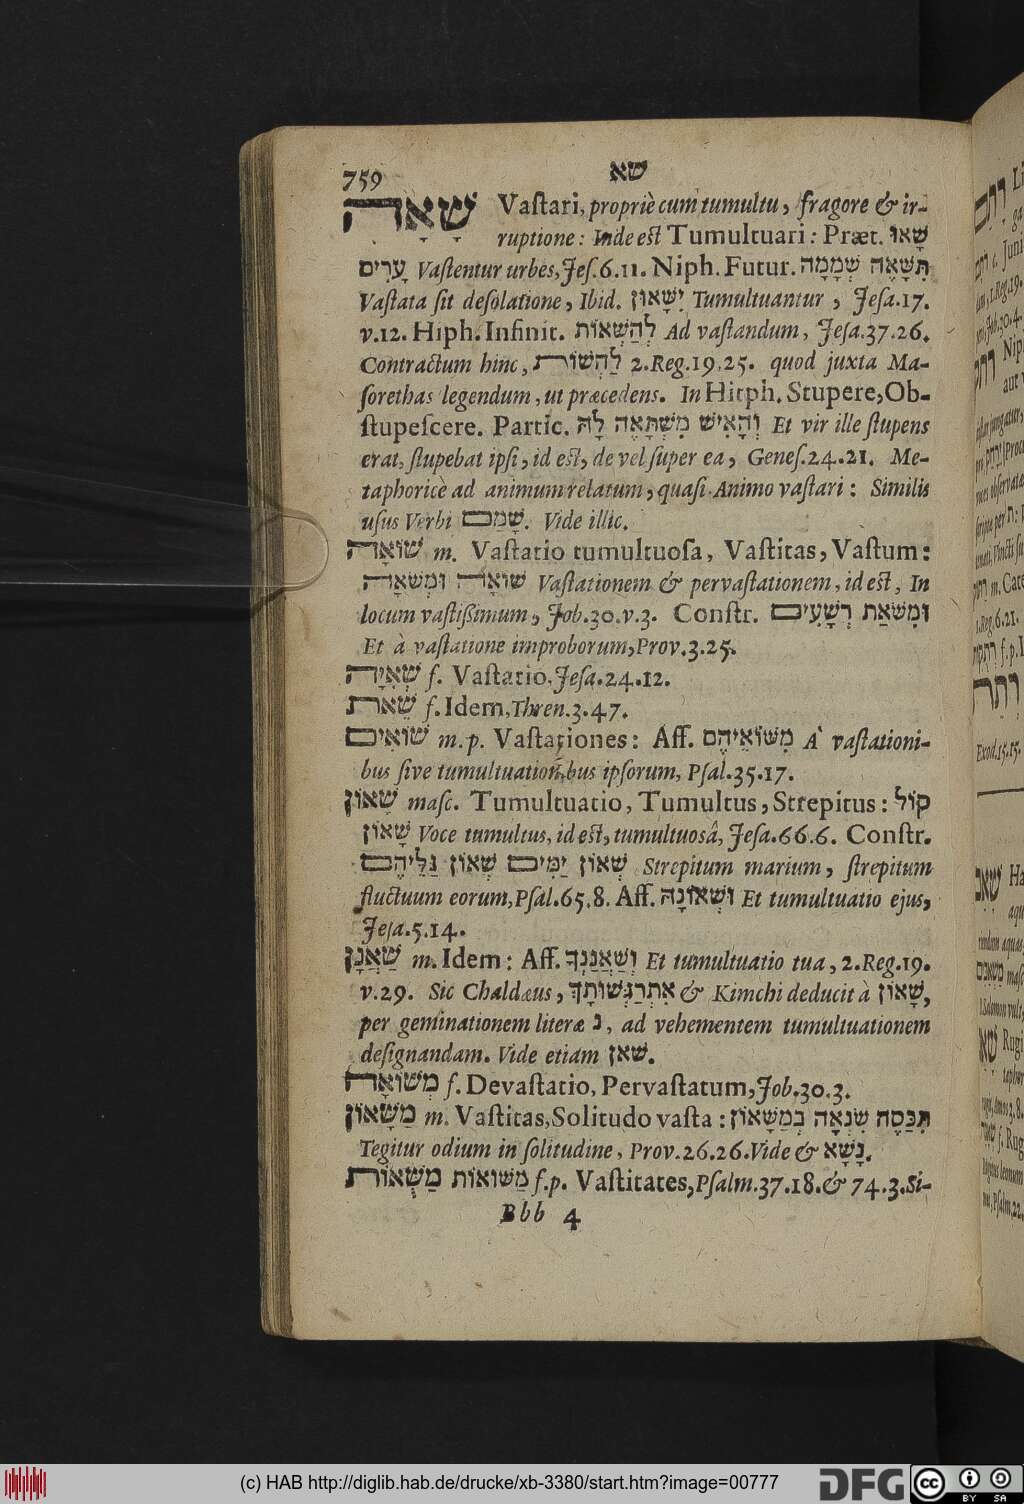 759 שא
שָׁאָה Vaſtari, propriè cum tumultu, fragore & ir-
ruptione: Inde eſt Tumultuari: Præt. שָׁאוּ
עָרִים Vaſtentur urbes, Jeſ. 6. 11. Niph. Futur. תִּשָּׁאֶה שְׁמָמָה
Vaſtata ſit deſolatione, Ibid. יִשָּׁאוּן Tumultuantur, Jeſa. 17.
v. 12. Hiph. Infinit. לְהַשְׁאוֹת Ad vaſtandum, Jeſa. 37. 26.
Contractum hinc, לַהְשׁוֹת 2. Reg. 19. 25. quod juxta Ma-
ſorethas legendum, ut præcedens. In Hitph. Stupere, Ob-
ſtupeſcere. Partic. וְהָאִישׁ מִשְׁתָּאֶה לָהּ Et vir ille ſtupens
erat, ſtupebat ipſi, id eſt, de vel ſuper ea, Geneſ. 24. 21. Me-
taphoricè ad animum relatum, quaſi Animo vaſtari: Similis
uſus Verbi שָׁמַם. Vide illic.
שׁוֹאָה m. Vaſtatio tumultuoſa, Vaſtitas, Vaſtum:
שׁוֹאָה וּמְשֹׁאָה Vaſtationem & pervaſtationem, id eſt, In
locum vaſtiſſimum, Job. 30. v. 3. Conſtr. וּמִשֹּׁאַת רְשָׁעִים
Et à vaſtatione improborum, Prov. 3. 25.
שְׁאִיָּה f. Vaſtatio, Jeſa. 24. 12.
שֵׁאת f. Idem, Thren. 3. 47.
שׁוֹאִים m. p. Vaſtationes: Aff. מִשּׁוֹאֵיהֶם A vaſtationi-
bus ſive tumultuationibus ipſorum, Pſal. 35. 17.
שָׁאוֹן maſc. Tumultuatio, Tumultus, Strepitus: קוֹל
שָׁאוֹן Voce tumultus, id eſt, tumultuosâ, Jeſa. 66. 6. Conſtr.
שְׁאוֹן יַמִּים שְׁאוֹן גַּלֵּיהֶם Strepitum marium, ſtrepitum
fluctuum eorum, Pſal. 65. 8. Aff. וּשְׁאוֹנָהּ Et tumultuatio ejus,
Jeſa. 5. 14.
שַׁאֲנָן m. Idem: Aff. וְשַׁאֲנַנְךָ Et tumultuatio tua, 2. Reg. 19.
v. 29. Sic Chaldæus, אִתְרַגְּשׁוּתָךְ & Kimchi deducit à שָׁאוֹן,
per geminationem literæ נ, ad vehementem tumultuationem
deſignandam. Vide etiam שׁאן.
מְשׁוֹאָה f. Devaſtatio, Pervaſtatum, Job. 30. 3.
מַשָּׁאוֹן m. Vaſtitas, Solitudo vaſta: תִּכַּסֶּה שִׂנְאָה בְּמַשָּׁאוֹן
Tegitur odium in ſolitudine, Prov. 26. 26. Vide & נָשָׁא.
מַשֻּׁאוֹת מַשּׁוּאוֹת f. p. Vaſtitates, Pſalm. 37. 18. & 74. 3. Si-
Bbb 4
(c) HAB http://diglib.hab.de/drucke/xb-3380/start.htm?image=00777
DFG
cc BY SA